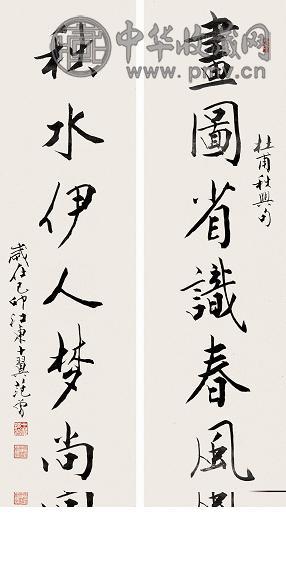 中华收藏网
www.pmv.cn
杜甫秋興句
畫圖省識春風
秋水伊人梦尚
歲在己卯江東十翼范曾